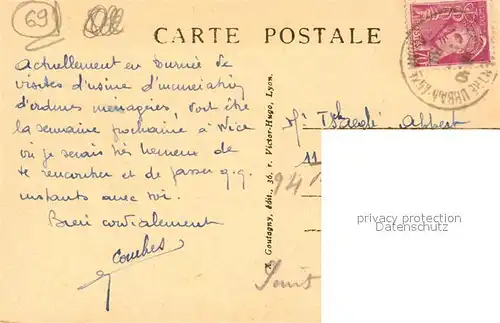 69
CARTE POSTALE
Actuellement en tournée de
visites d'usine d'incinération
d'ordures ménagères, doit être
la semaine prochaine à Nice
où je serais très heureux de
te rencontrer et de passer q.q.
instants avec toi.
Bien cordialement
Combes
A. Goutagny, édit., 36, r. Victor-Hugo, Lyon.
Mr Albert
11
94
privacy protection
Datenschutz